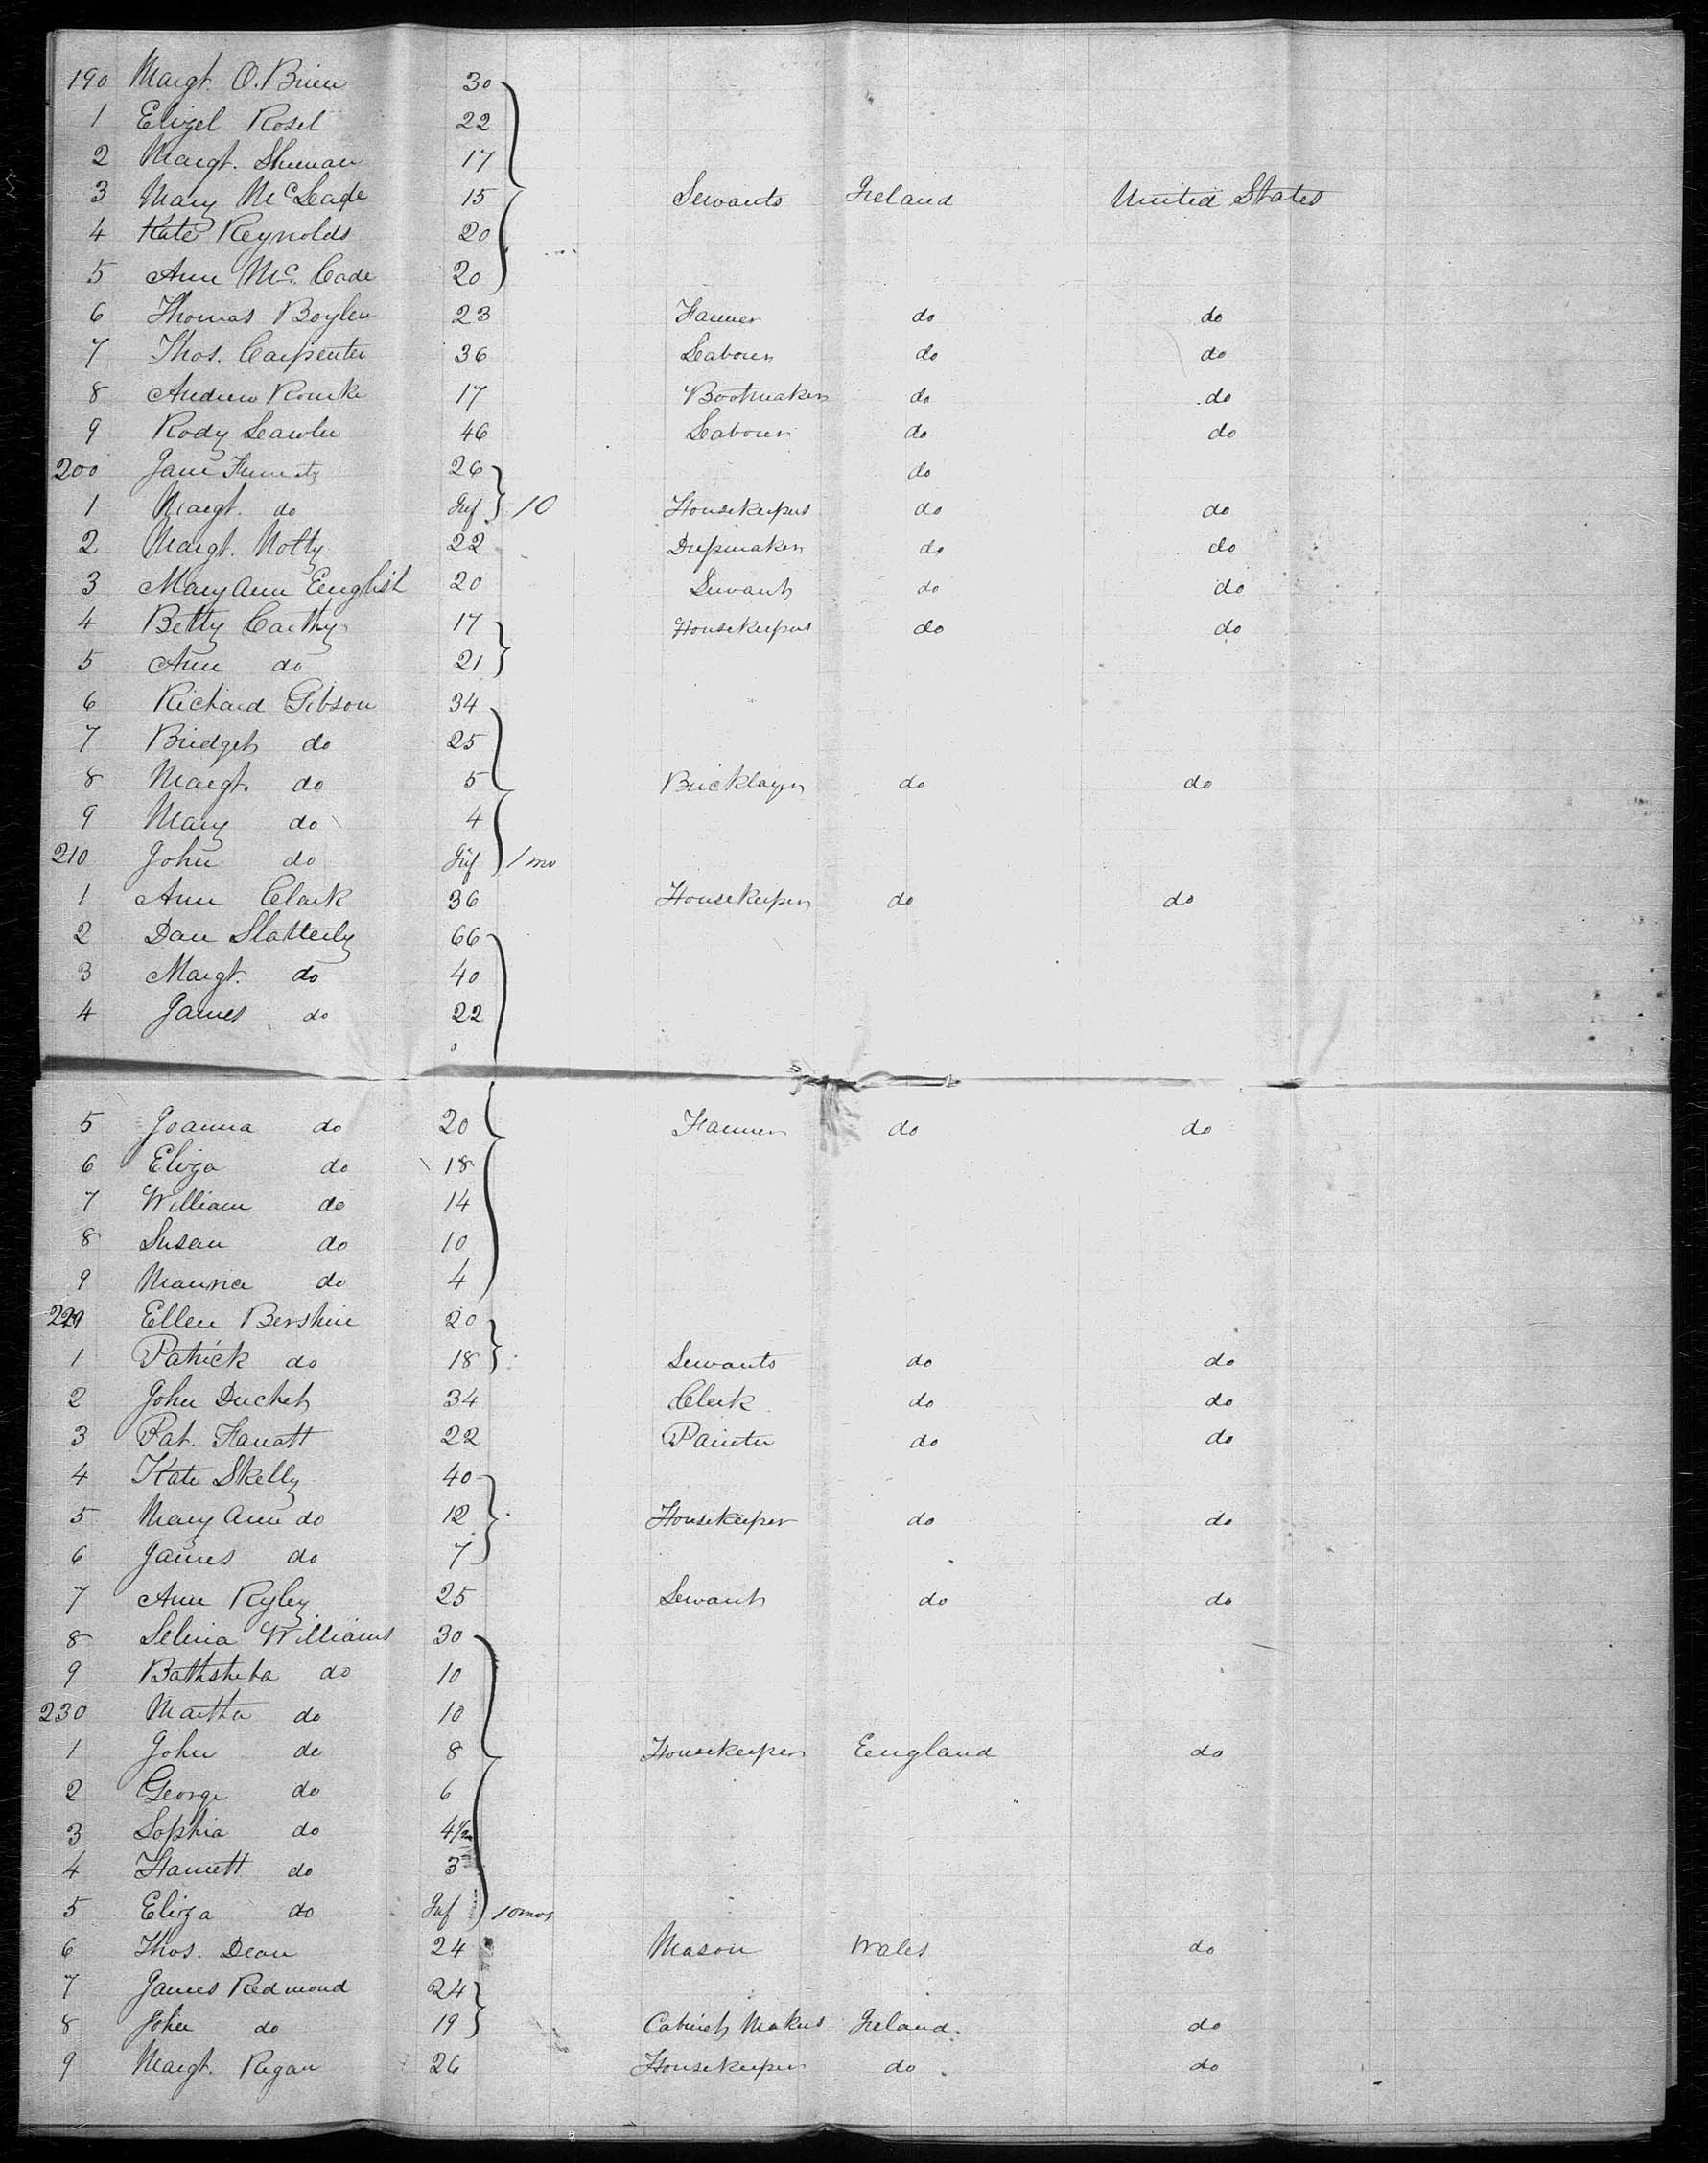 190 Margt. O.Brien 30
1 Elizel Rosel 22
2 Margt. Shuman 17
3 Mary McLeade 15 Servants Ireland United States
4 Kate Reynolds 20
5 Ann Mc. Cade 20
6 Thomas Boylen 23 Farmer do do
7 Thos. Carpenter 36 Labourer do do
8 Andrew Rourke 17 Bootmaker do do
9 Rody Leawler 46 Labourer do do
200 Jane 26 do
1 Margt. do Inf 10 Housekeepers do do
2 Margt. Notty 22 Dressmaker do do
3 Mary Ann Eenglish 20 Servant do do
4 Betty Carthy 17 Housekeepers do do
5 Ann do 21
6 Richard Gibson 34
7 Bridget do 25
8 Margt. do 5 Bricklayer do do
9 Mary do 4
210 John do Inf 1 mo
1 Ann Clark 36 Housekeeper do do
2 Dan Slatterly 66
3 Margt. do 40
4 James do 22
5 Joanna do 20 Farmer do do
6 Eliza do 18
7 William do 14
8 Susan do 10
9 Maurice do 4
220 Ellen Bershine 20
1 Patrick do 18 Servants do do
2 John Duchet 34 Clerk do do
3 Pat. Farratt 22 Painter do do
4 Kate Skelly 40
5 Mary Ann do 12 Housekeeper do do
6 James do 7
7 Ann Ryley 25 Servant do do
8 Selina Williams 30
9 Bathsheba do 10
230 Martha do 10
1 John do 8 Housekeeper Eengland do
2 George do 6
3 Sophia do 4½
4 Harriett do 3
5 Eliza do Inf 10 mos
6 Thos. Dean 24 Mason Wales do
7 James Redmond 24
8 John do 19 Cabinet Makers Ireland do
9 Margt. Regan 26 Housekeeper do do